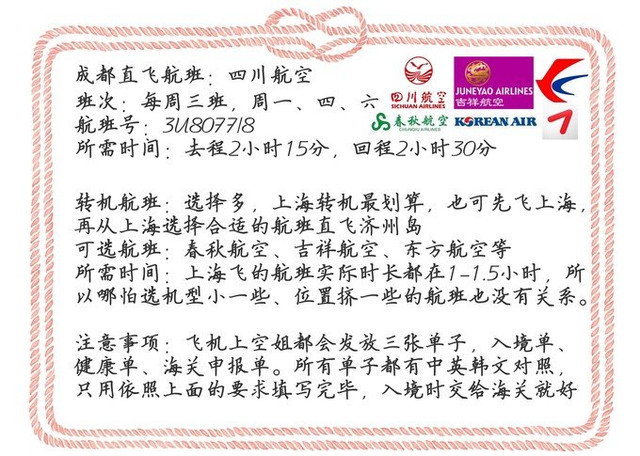 成都直飞航班：四川航空
班次：每周三班，周一、四、六
航班号：3U8077/8
所需时间：去程2小时15分，回程2小时30分
四川航空
SICHUAN AIRLINES
JUNEYAO AIRLINES
吉祥航空
春秋航空
CHUNQIU AIRLINES
KOREAN AIR
转机航班：选择多，上海转机最划算，也可先飞上海，
再从上海选择合适的航班直飞济州岛
可选航班：春秋航空、吉祥航空、东方航空等
所需时间：上海飞的航班实际时长都在1-1.5小时，所
以哪怕选机型小一些、位置挤一些的航班也没有关系。
注意事项：飞机上空姐都会发放三张单子，入境单、
健康单、海关申报单。所有单子都有中英韩文对照，
只用依照上面的要求填写完毕，入境时交给海关就好